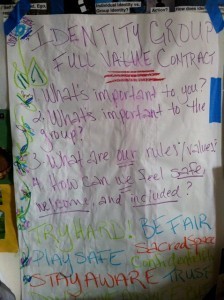 IDENTITY GROUP
FULL VALUE CONTRACT
1. What's important to you?
2. What's important to the
group?
3. What are our rules/values?
4. How can we feel safe,
welcome, and included?
TRY HARD! BE FAIR
PLAY SAFE Sacred Space
STAY AWARE TRUST